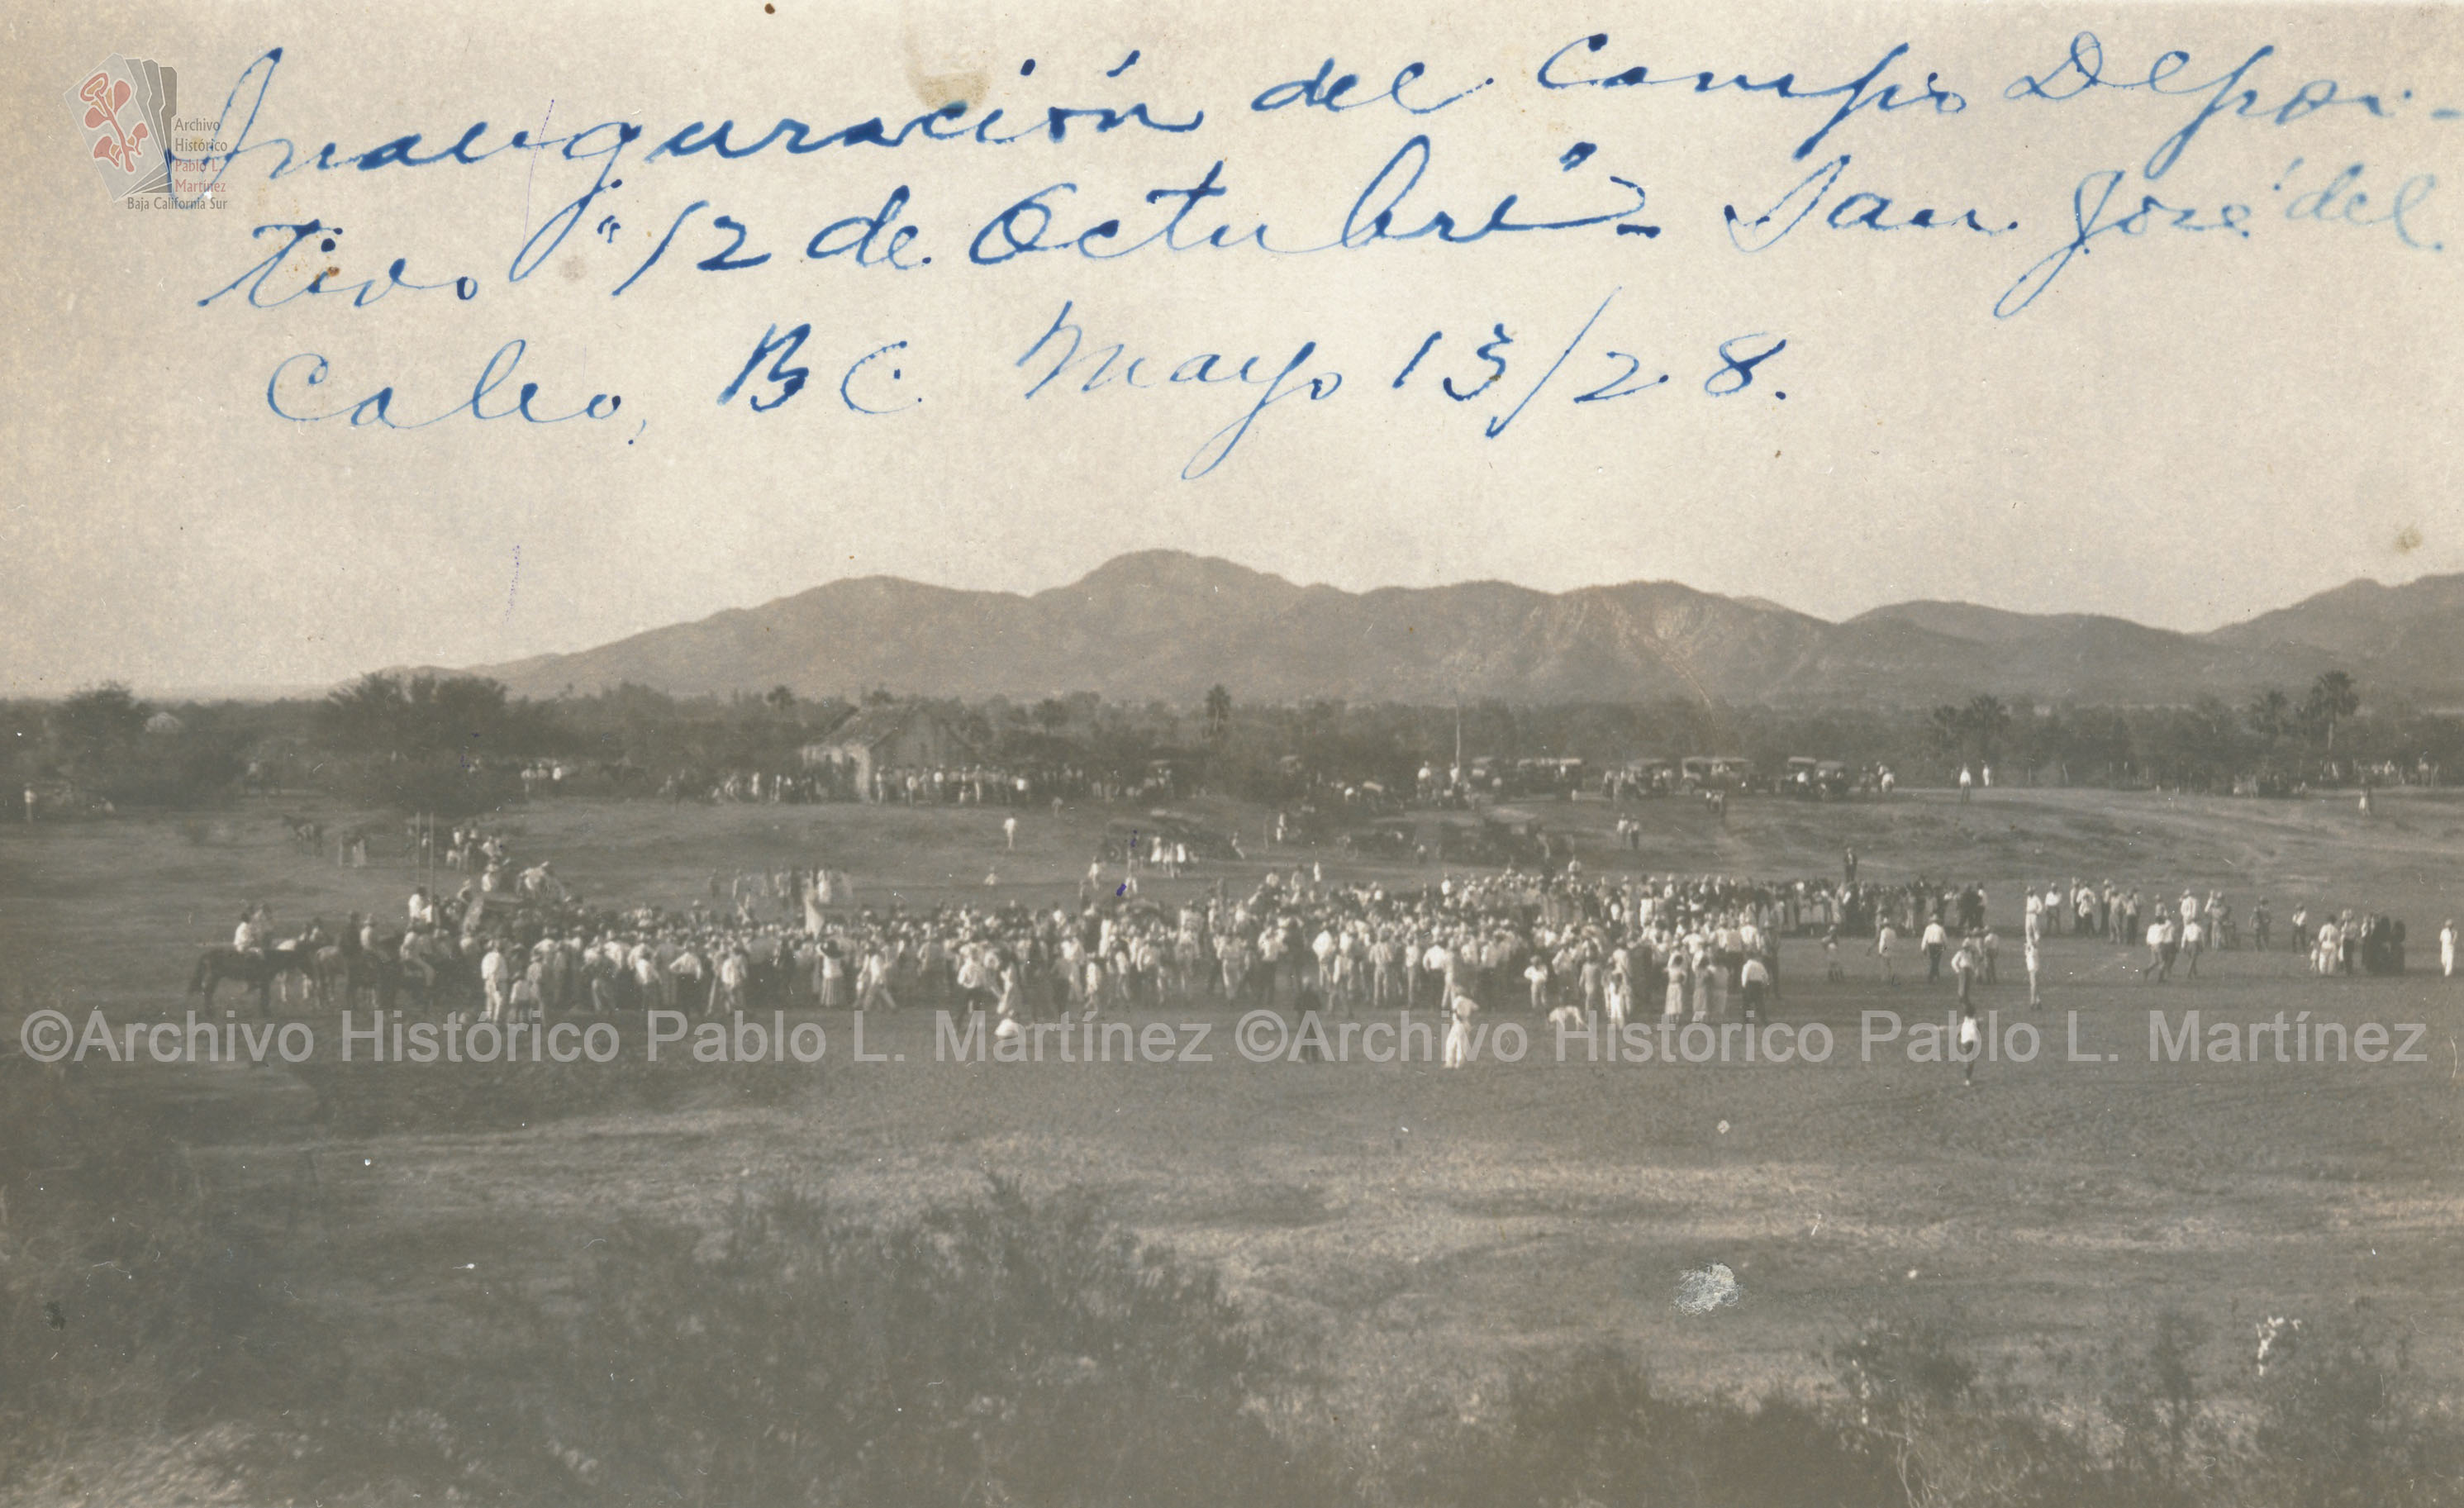 Archivo
Histórico
Pablo L.
Martínez
Baja California Sur
Inauguración del Campo Depor-
tivo "12 de Octubre" - San José del
Cabo, B C. Mayo 13/28.
©Archivo Histórico Pablo L. Martínez ©Archivo Histórico Pablo L. Martínez